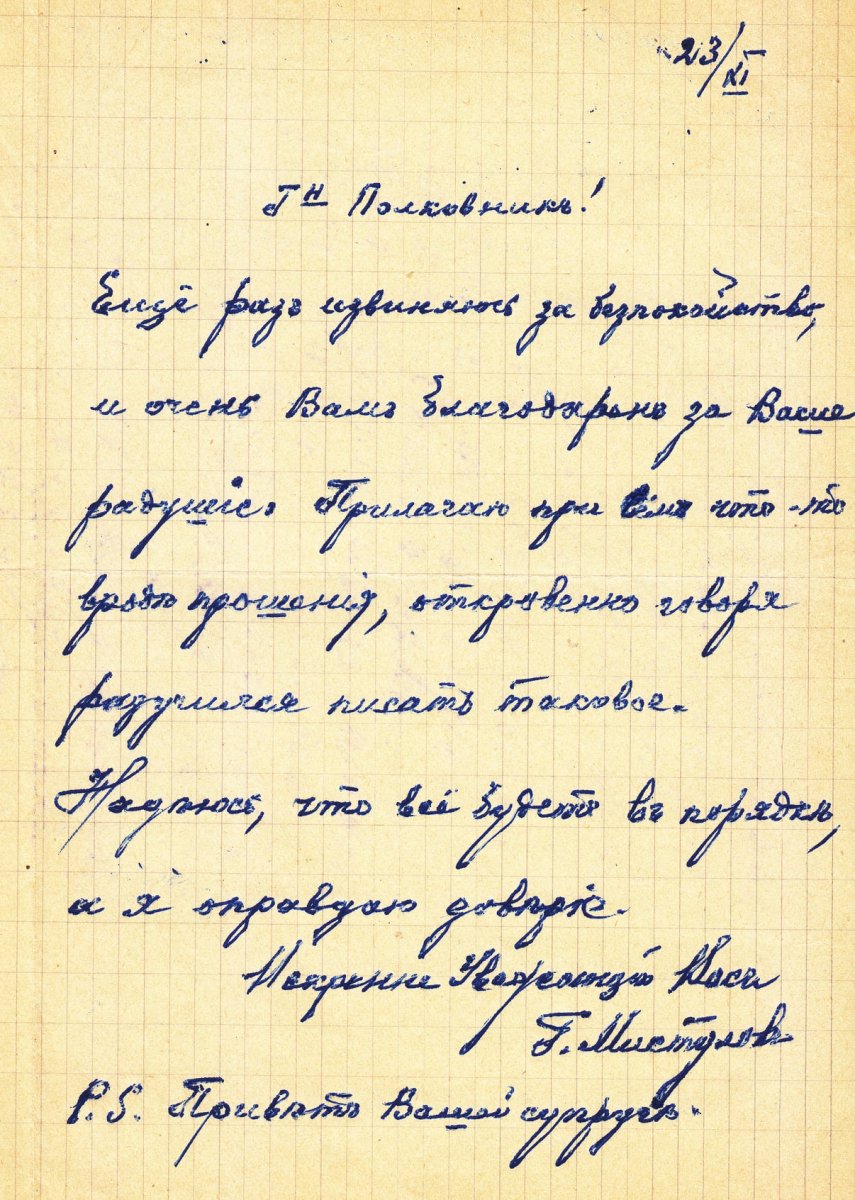 23/XI
Гн Полковникъ!
Ещё разъ извиняюсь за безпокойство,
и очень Вамъ благодаренъ за Ваше
радушіе. Прилагаю при семъ что-то
вродѣ прошенія, откровенно говоря
разучился писать таковое.
Надѣюсь, что всё будетъ въ порядкѣ,
а я оправдаю довѣріе.
Искренне Уважающій Васъ
Г. Мистуловъ
P.S. Привѣтъ Вашей супругѣ.